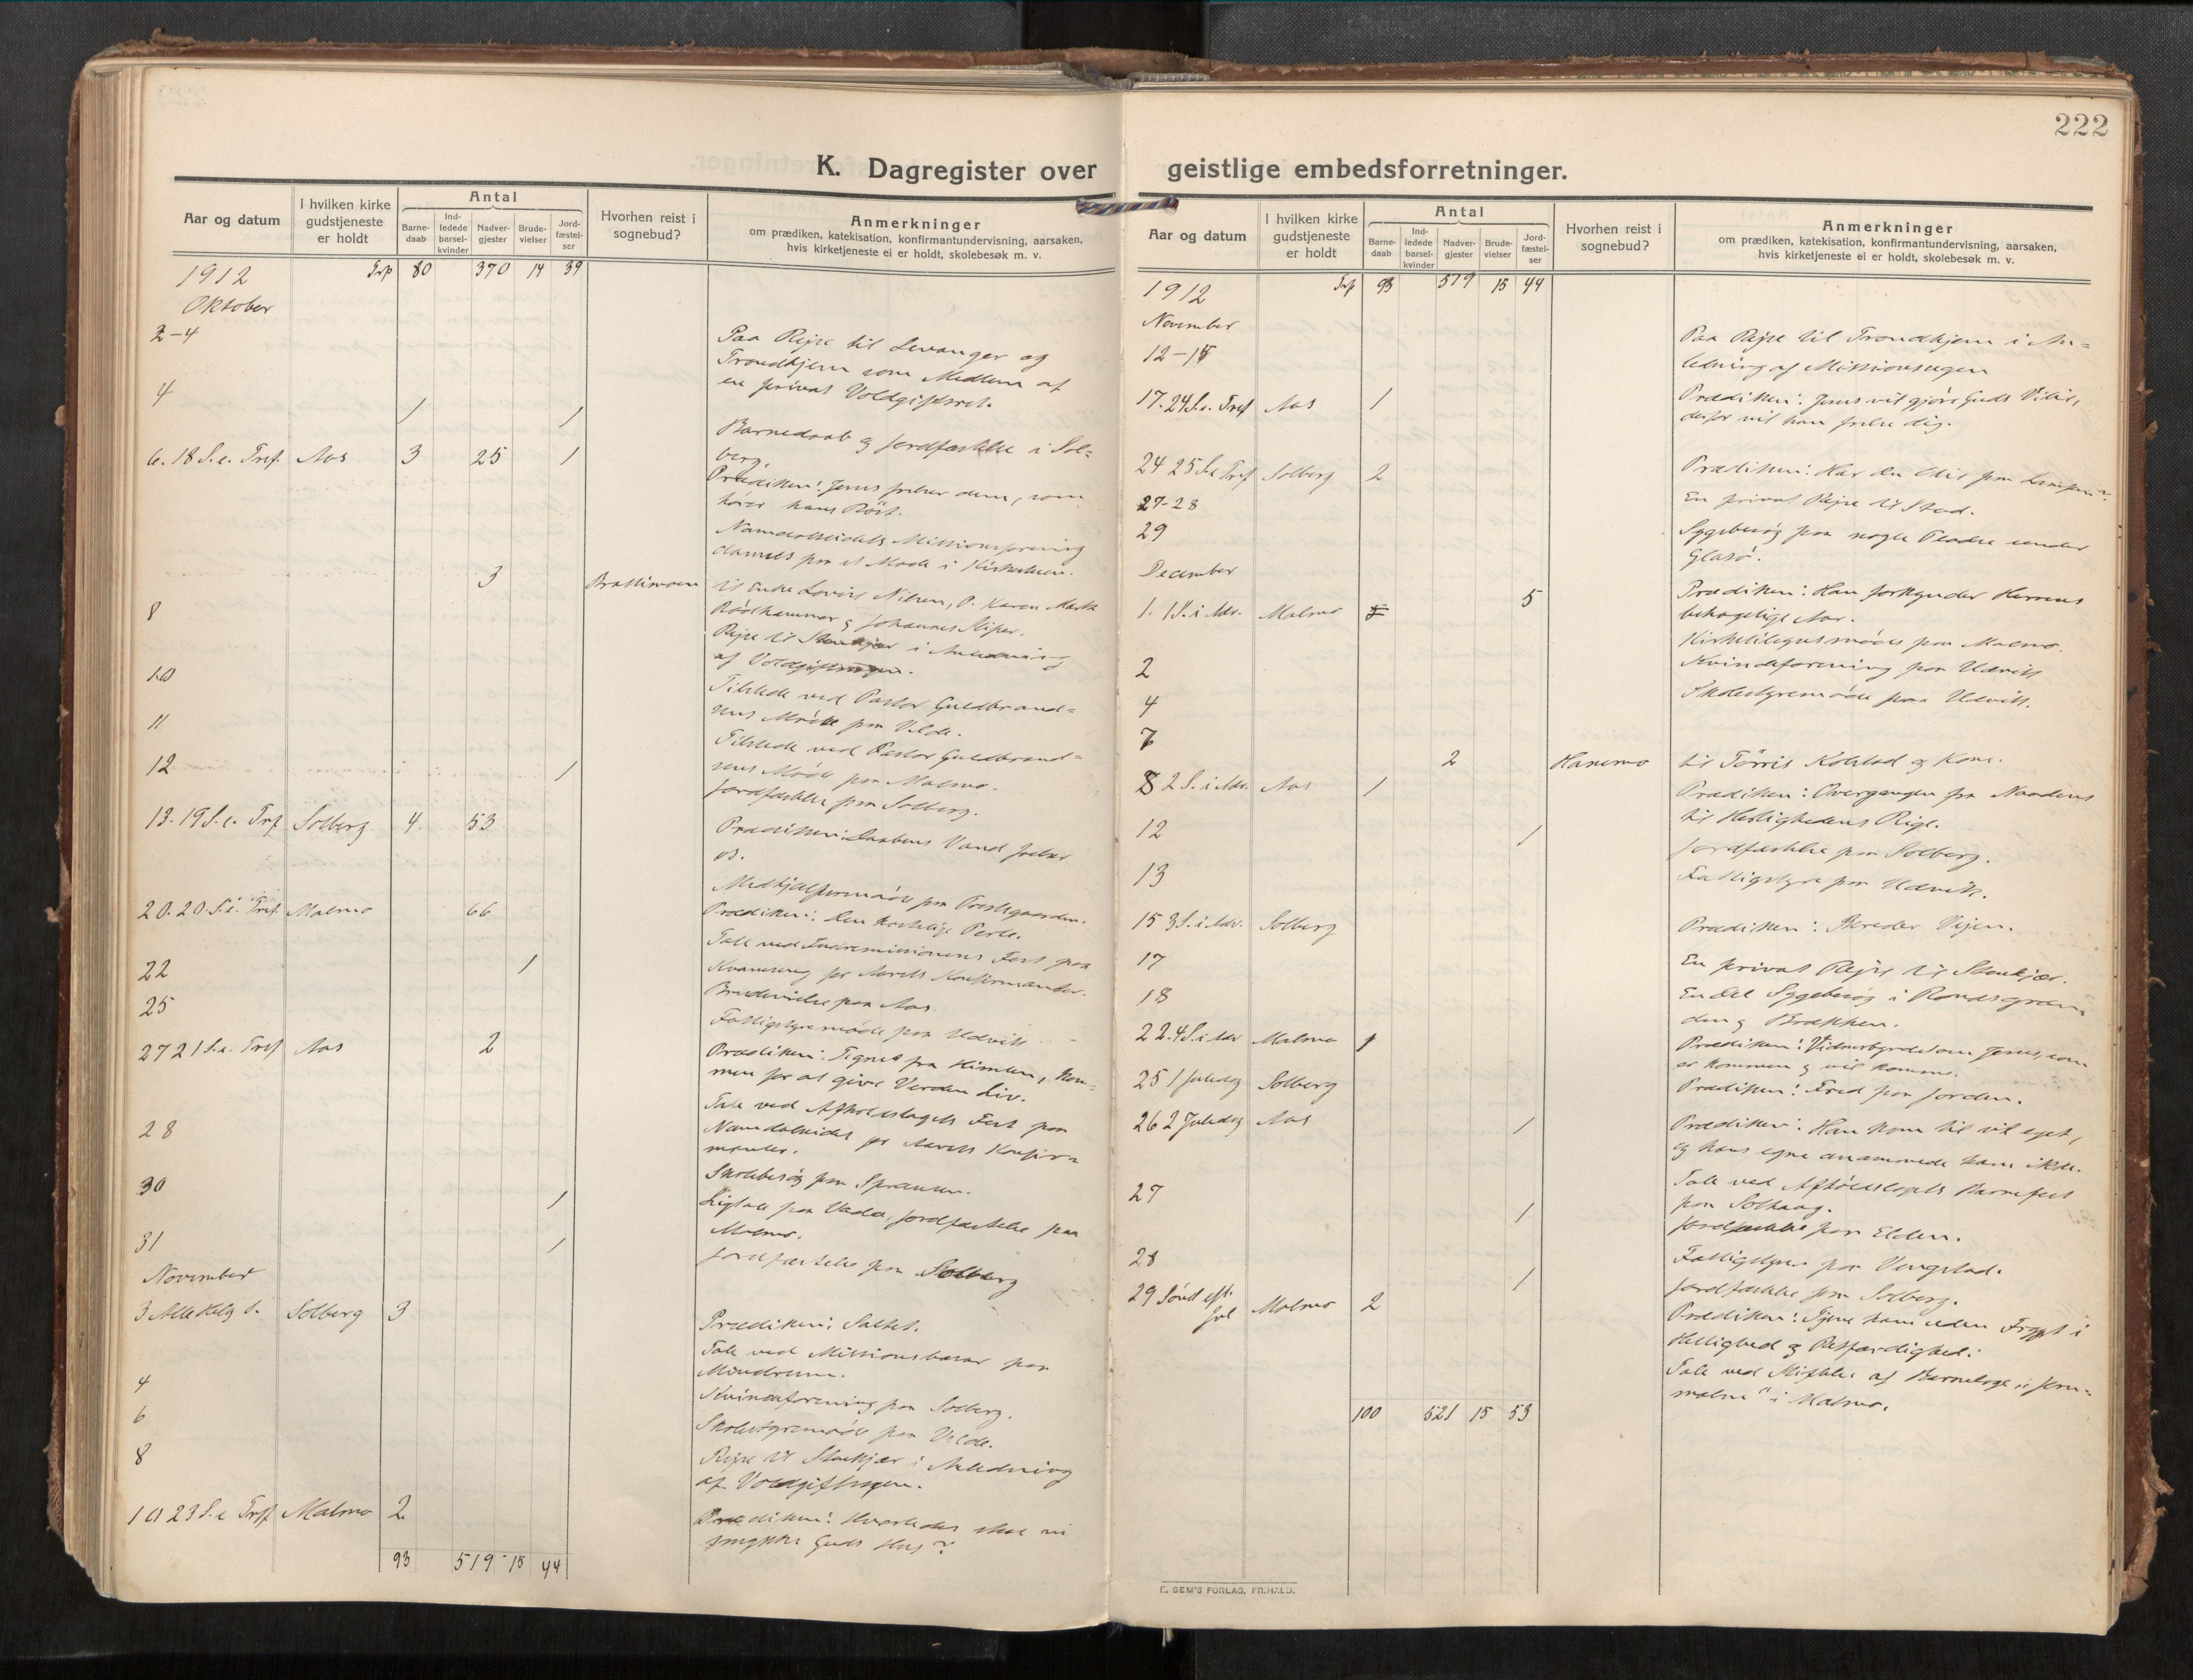 222
K. Dagregister over
geistlige embedsforretninger.
Aar og datum
I hvilken kirke gudstjeneste er holdt
Antal
Barne-daab
Ind-ledede barsel-kvinder
Nadver-gjester
Brude-vielser
Jord-fæstel-ser
Hvorhen reist i sognebud?
Anmerkninger
om prædiken, katekisation, konfirmantundervisning, aarsaken,
hvis kirketjeneste ei er holdt, skolebesøk m. v.
1912 Trsp 80 370 14 39
Oktober
2-4 Paa Rejse til Levanger og
Trondhjem som Medlem af
en privat Voldgiftsret.
4 1 1 Barnedaab og Jordfæstelse i Sol=
berg.
6. 18 S. e. Tref. Aas 3 25 1 Prædiken: Jesus frelser dem, som
hører hans Røst.
Namdalseidets Missionsforening
dannet paa et Møde i Kirkestuen.
3 Brattimoen til Enke Lovise Nilsen, P. Karen Marth
Rødhammer og Johannes Riper.
8 Rejse til Stenkjær i Anledning
af Voldgiftssagen.
10 Tilstede ved Pastor Guldbrand=
sens Møde paa Velde.
11 Tilstede ved Pastor Guldbrand=
sens Møde paa Malmo.
12 1 Jordfæstelse paa Solberg.
13. 19 S. e. Trf Solberg 4 53 Prædiken: Daabens Vand frelser
os.
Medhjælpermøde paa Prestegaarden.
20. 20. S. e. Tref. Malmo 66 Prædiken: Den kostelige Perle.
Tale ved Indremissionens Fest paa
Kvameseng for Aarets Konfirmander.
22 1 Brudevielse paa Aas.
25 Fattigstyremøde paa Udvik
27 21 S. e. Tref Aas 2 Prædiken: Tegnet fra Himlen, kom=
men for at give Verden Liv.
Tale ved Afholdslagets Fest paa
Namdalseidet for Aarets Konfir=
manter.
28 Skolebesøg paa Sprauten.
30 1 Ligtale paa Vada, Jordfæstelse paa
Malmo.
31 1 Jordfæstelse paa Solberg
November
3 Alle Helg S. Solberg 3 Prædiken: Saltet.
Tale ved Missionsbasar paa
4 Kvindeforening paa Solberg.
6 Skolestyremøde paa Velde.
8 Rejse til Stenkjær i Anledning
af Voldgiftssagen.
10 23 S. e Trf Malmo 2 Prædiken: Hvorledes skal vi
smykke Guds Hus?
93 519 15 44
Aar og datum
I hvilken kirke gudstjeneste er holdt
Antal
Barne-daab
Ind-ledede barsel-kvinder
Nadver-gjester
Brude-vielser
Jord-fæstel-ser
Hvorhen reist i sognebud?
Anmerkninger
om prædiken, katekisation, konfirmantundervisning, aarsaken,
hvis kirketjeneste ei er holdt, skolebesøk m. v.
1912 Trsp 93 519 15 44
November
12-15 Paa Rejse til Trondhjem i An=
ledning af Missionsugen
17. 24 S. e. Tref Aas 1 Prædiken: Jesus vil gjøre Guds Vilie,
derfor vil han frelse dig.
24 25 S. e Tref Solberg 2 Prædiken: Har du Olie paa Lampen?
27-28 En privat Rejse til Stod.
29 Sygebesøg paa nogle Pladse under
Glasø.
December
1. 1 S. i Adv. Malmo 5 Prædiken: Han forkynder Herrens
behagelige Aar.
Kirkeligusmøde paa Malmo.
2 Kvindeforening paa Udvik
4 Skolestyremøde paa Udvik.
7 2 Hanemo til Tørris Kolstad og Kone.
8 2 S. i Adv. Aas 1 Prædiken: Overgangen fra Naadens
til Herlighedens Rige.
12 1 Jordfæstelse paa Solberg.
13 Fattigstyre paa Udvik.
15 3 S. i Adv. Solberg Prædiken: Bereder Vejen.
17 En privat Rejse til Stenkjær.
18 En del Sygebesøg i
den og Brækken.
22. 4 S. i Adv Malmo 1 Prædiken: Vidnesbyrdet om Jesus, som
er kommen og vil komme.
25 1 Juledag Solberg Prædiken: Fred paa Jorden.
26 2 Juledag Aas 1 Prædiken: Han kom til sit eget,
og hans egne annammede ham ikke.
27 Tale ved Afholdslagets Barnefest
paa Solhaug.
1 Jordfæstelse paa Elden.
28 Fattigstyre paa Vengstad.
1 Jordfæstelse paa Solberg.
29 Sønd eft. Jul Malmo 2 Prædiken: Tjene ham uden Frygt i
Hellighed og Retfærdighed.
Tale ved Stiftelse af Barneloge
i Malmo.
100 521 15 53
E. SEM'S FORLAG, FR.HALD.